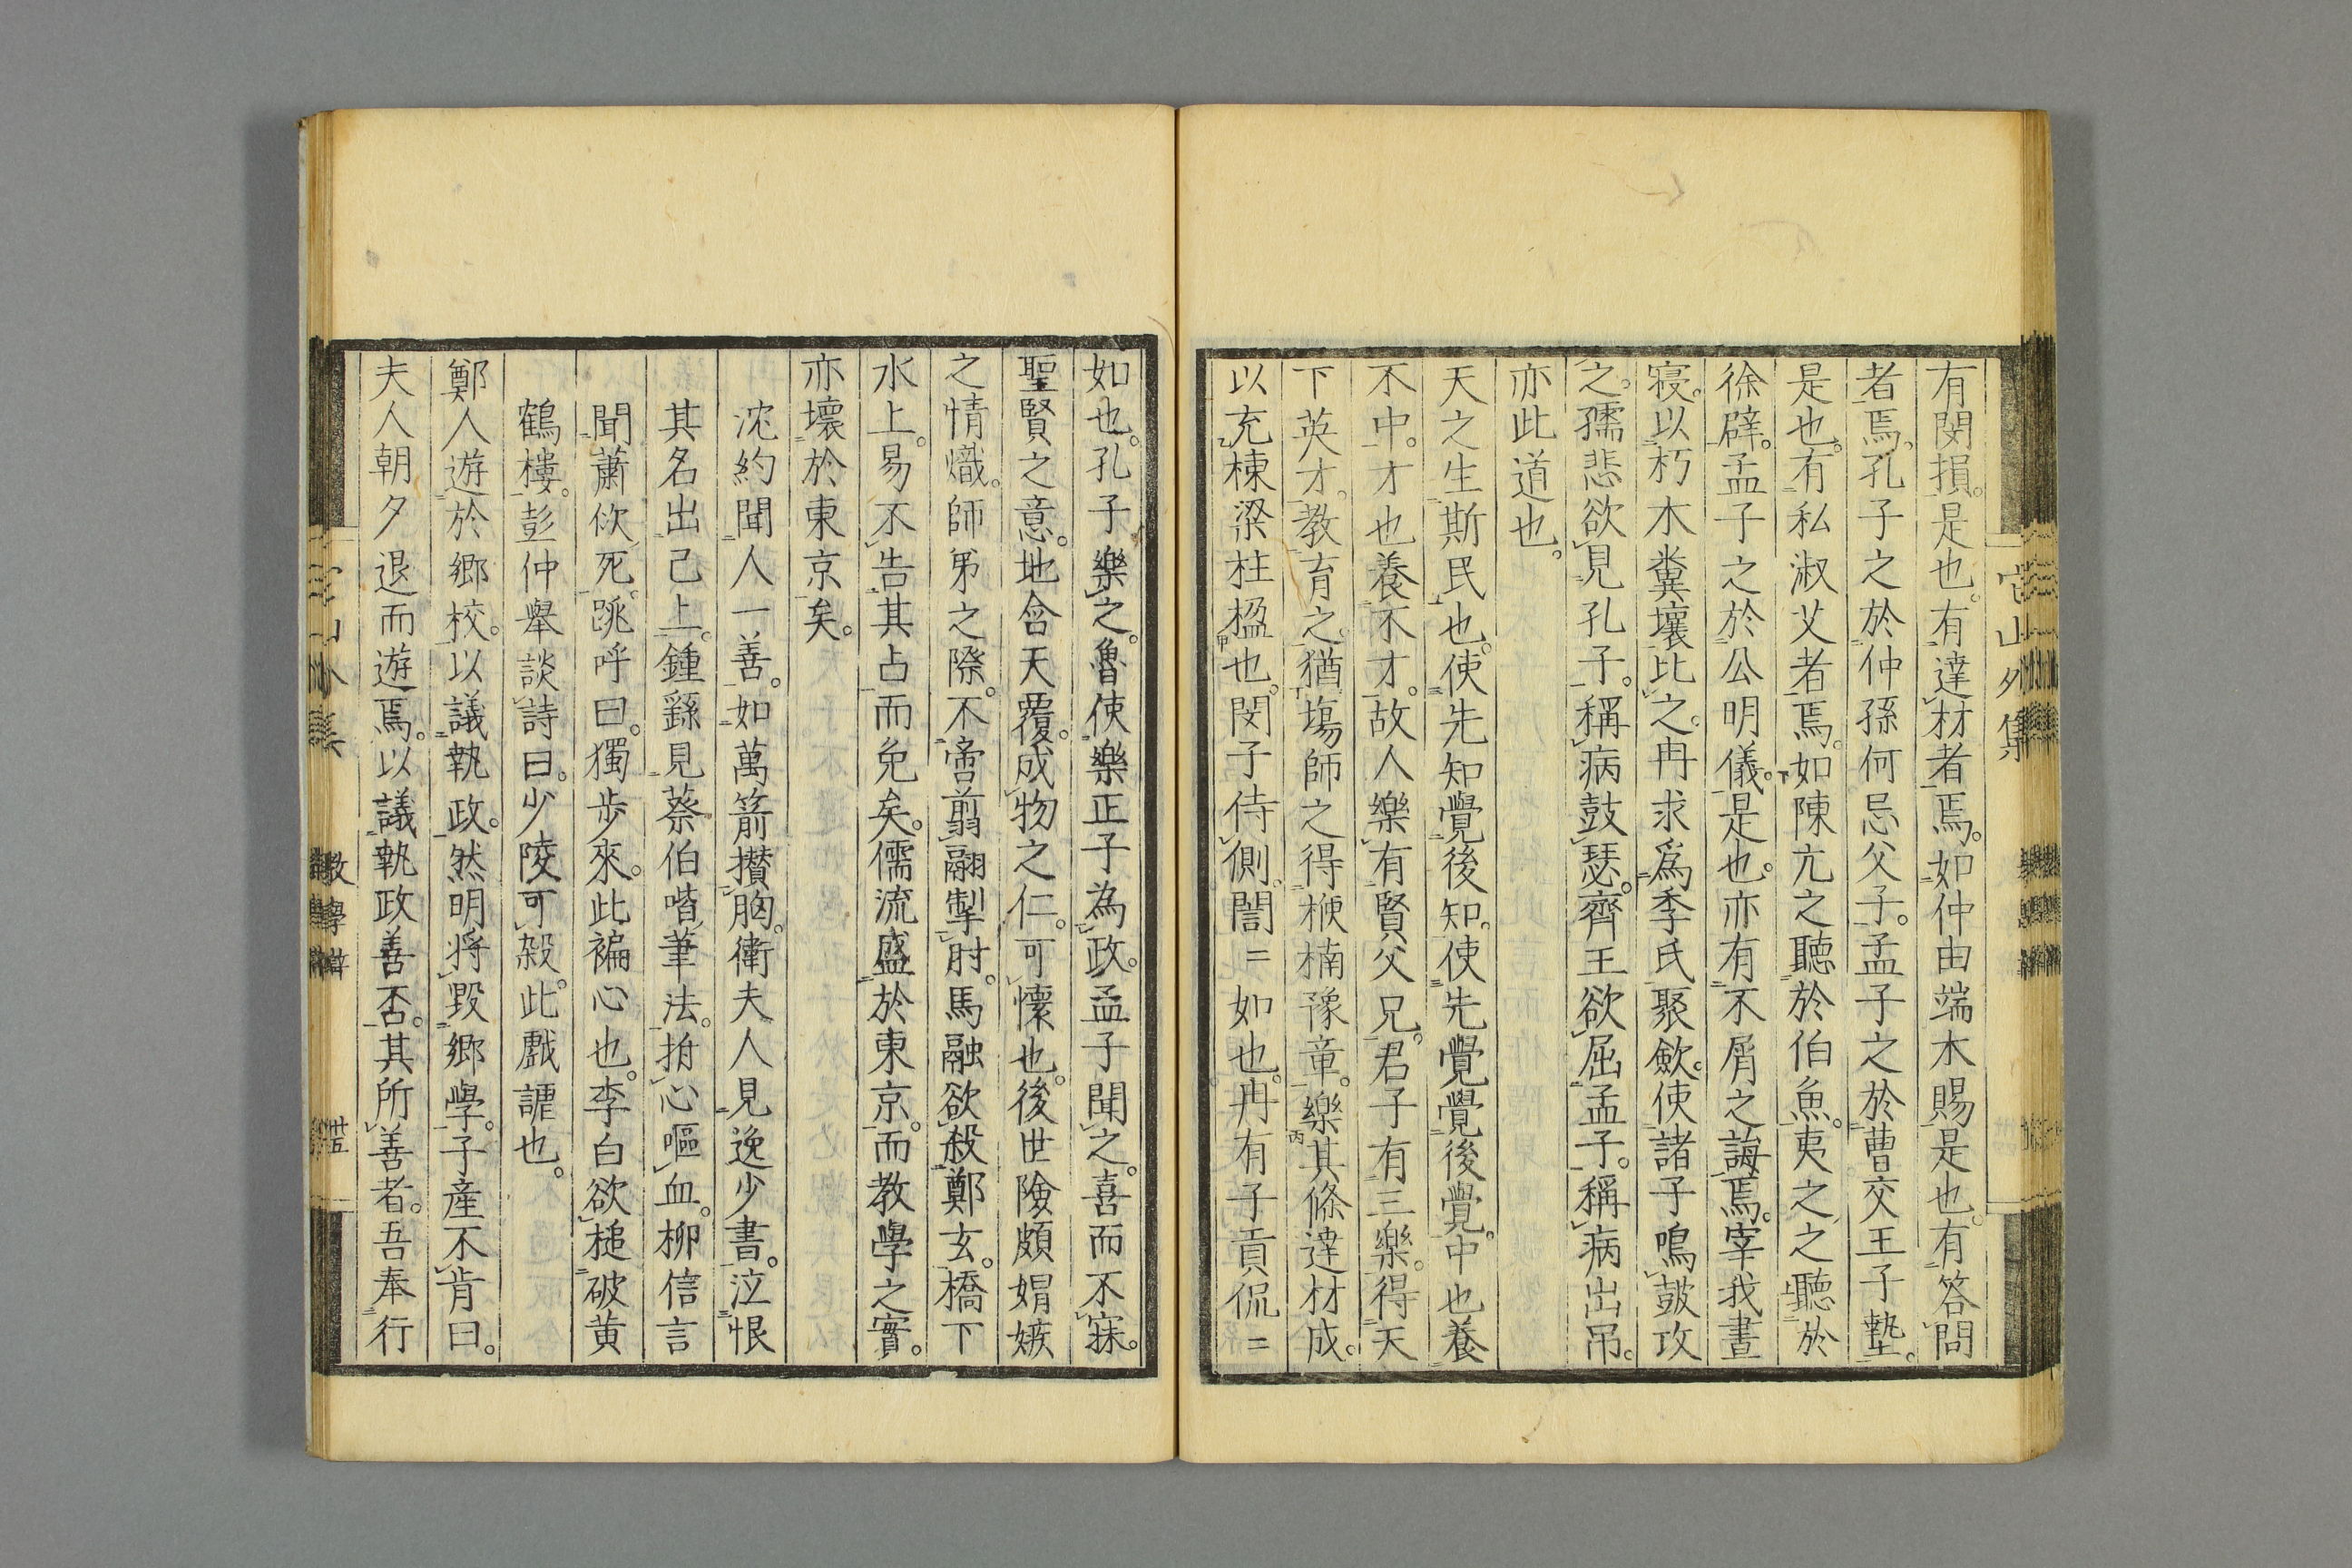 有閔損。是也。有達材者焉。如仲由端木賜是也。有答問
者焉。孔子之於仲孫何忌父子。孟子之於曹交王子墊。
是也。有私淑艾者焉。如陳亢之聽於伯魚。夷之之聽於
徐辟。孟子之於公明儀。是也。亦有不屑之誨焉。宰我晝
寝。以朽木糞壤比之。冉求爲季氏聚歛。使諸子鳴鼓攻
之。孺悲欲見孔子。稱病鼓瑟。齊王欲屈孟子。稱病出吊。
亦此道也。
天之生斯民也。使先知覺後知。使先覺覺後覺。中也養
不中。才也養不才。故人樂有賢父兄。君子有三樂。得天
下英才。教育之。猶塲師之得楩楠豫章。樂其條達材成。
以充棟梁柱楹也。閔子侍側。誾〻如也。冉有子貢侃〻
如也。孔子樂之。魯使樂正子為政。孟子聞之。喜而不寐。
聖賢之意。地含天覆。成物之仁。可懷也。後世險頗媢嫉
之情熾。師弟之際。不啻翦翮掣肘。馬融欲殺鄭玄。橋下
水上。易不告其占而免矣。儒流盛於東京。而教學之實。
亦壞於東京矣。
沈約聞人一善。如萬箭攢胸。衛夫人見逸少書。泣恨
其名出己上。鍾繇見蔡伯喈筆法。拊心嘔血。柳信言
聞蕭佽死。跳呼曰。獨步來。此褊心也。李白欲槌破黄
鶴樓。彭仲舉談詩曰。少陵可殺。此戲謔也。
鄭人遊於鄉校。以議執政。然明将毀鄉學。子産不肯曰。
夫人朝夕退而遊焉。以議執政善否。其所善者。吾奉行
它山外集
教學